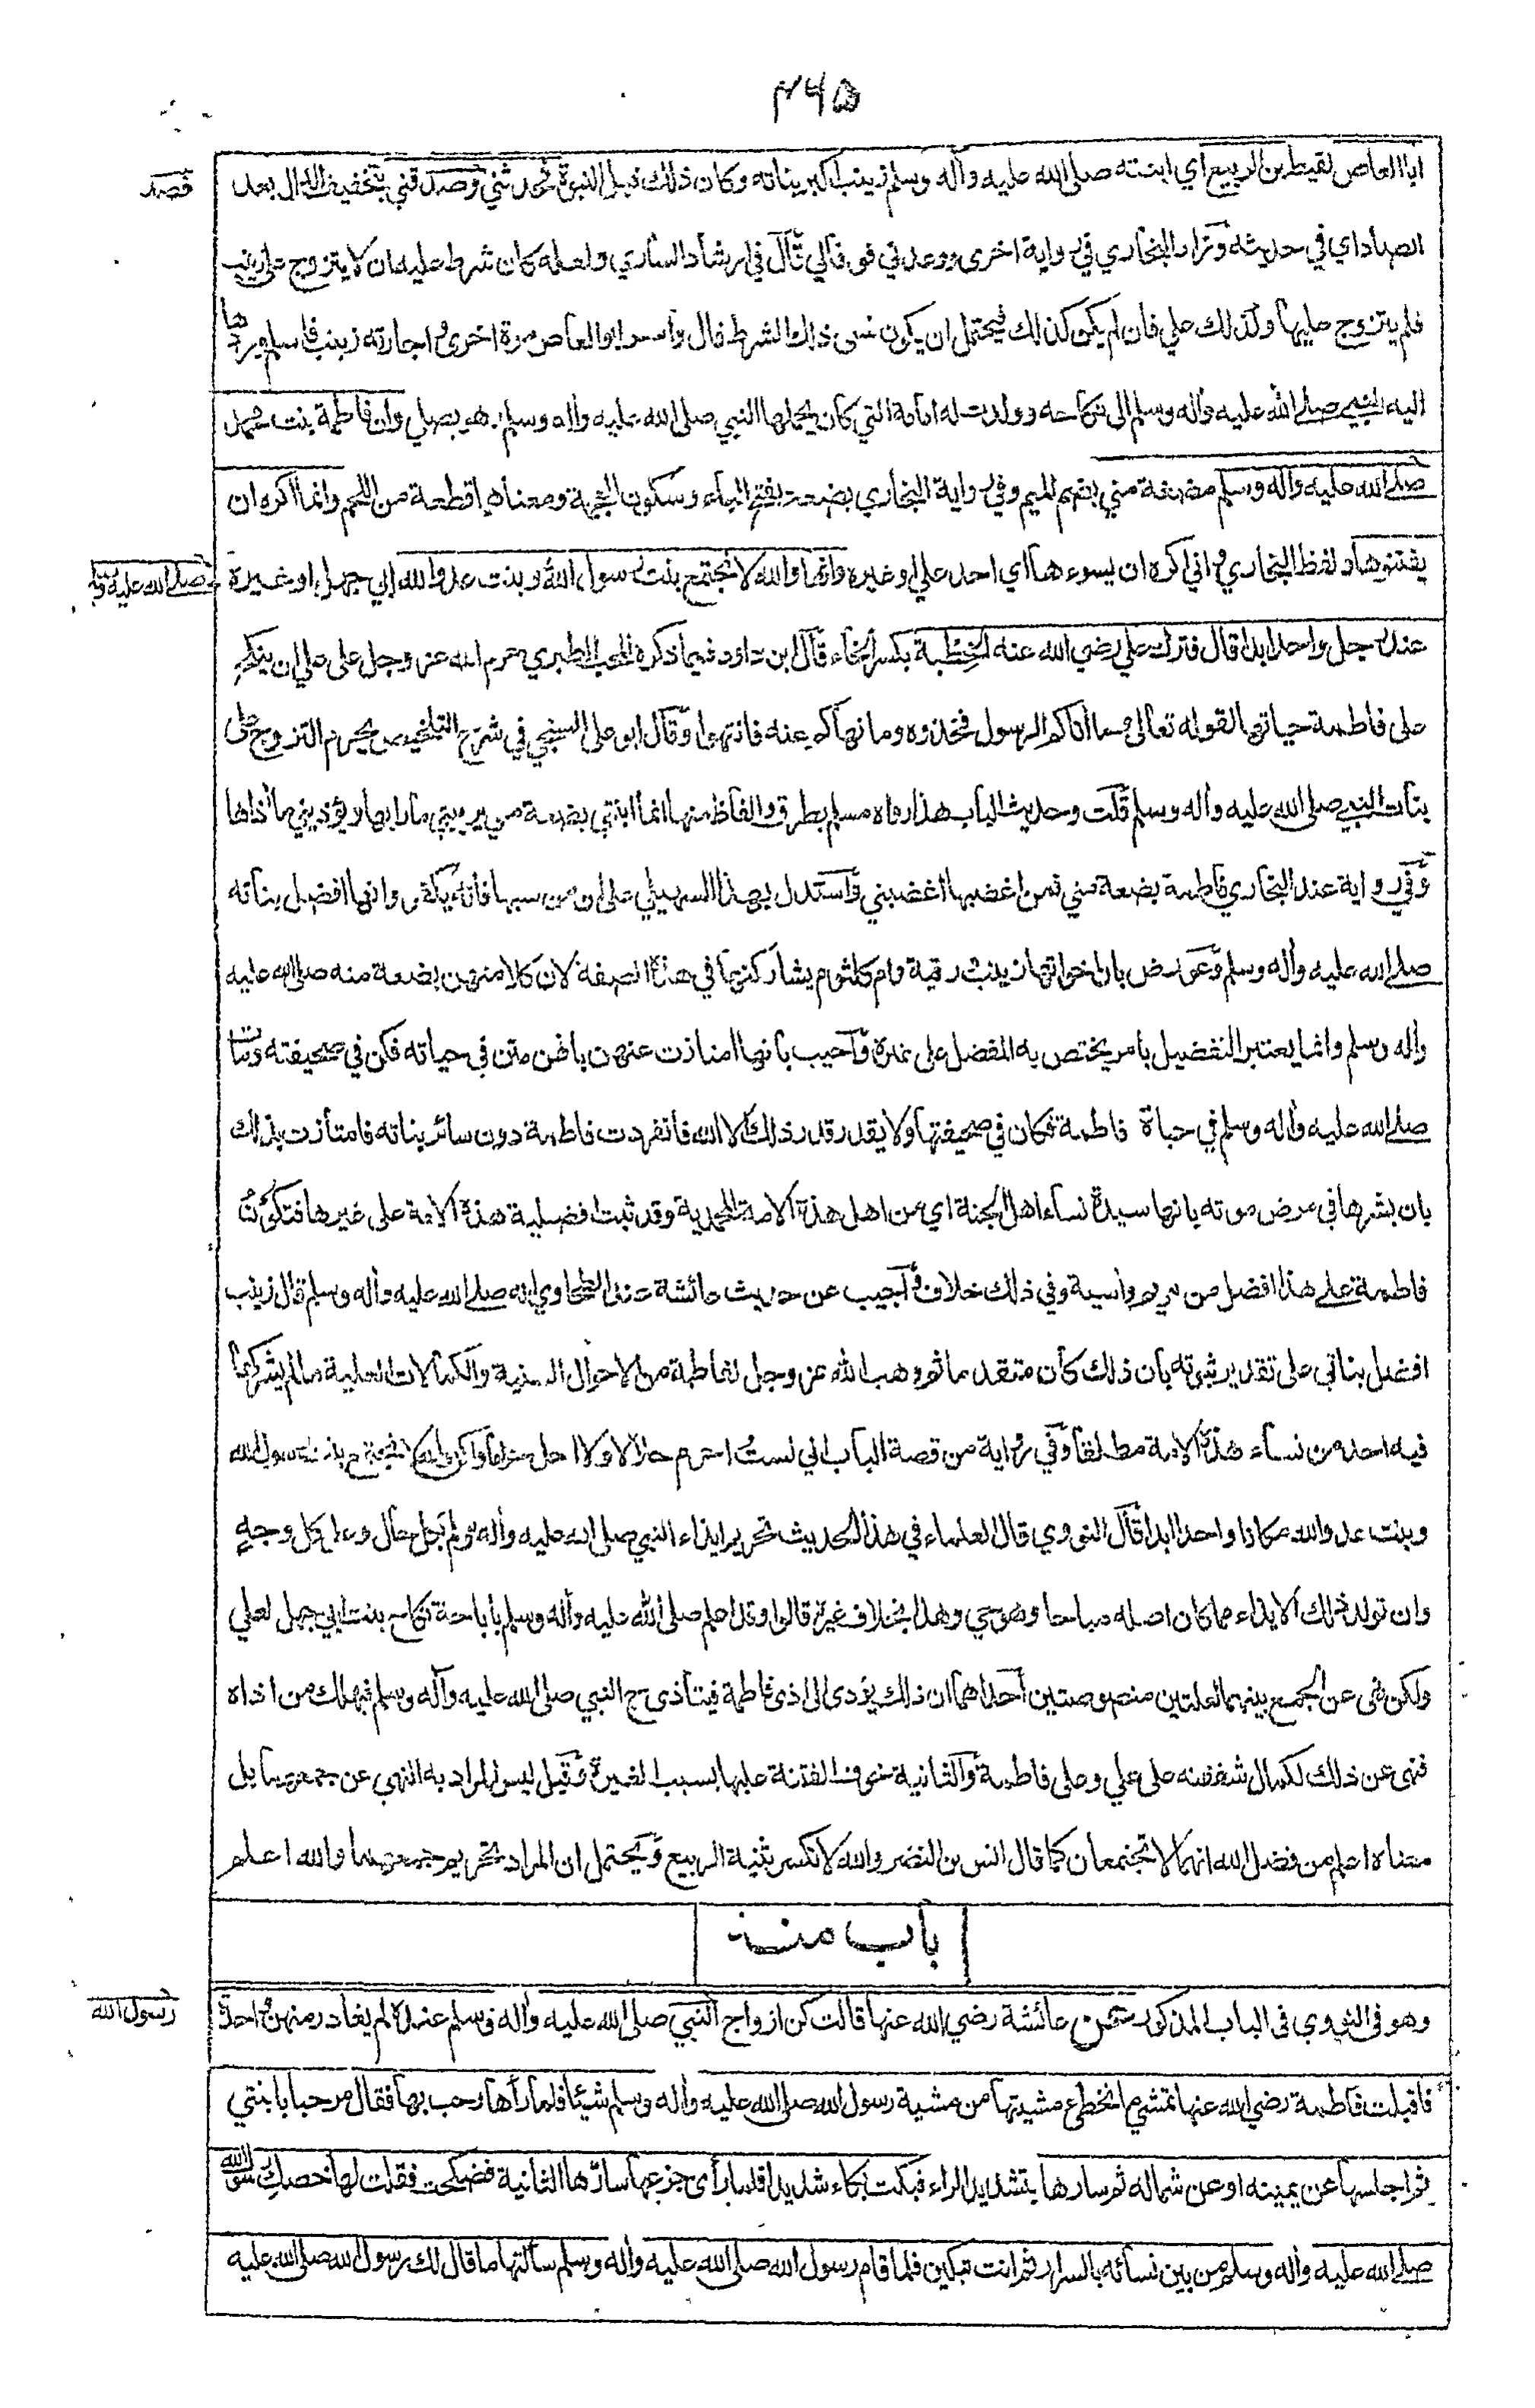 ۴۶۵
ابا العاص لقيط بن الربيع اي ابنته صلى الله عليه وأله وسلم زينب اكبر بناته وكان ذلك قبل النبوة فحدثني وصدقني بتخفيف الدال بعد
فصد
الصاد اي في حديثه وزاد البخاري في رواية اخرى ووعدني فوفألي قال في ارشاد الساري ولعله كان شرط عليه ان لا يتزوج على زينب
فلم يتزوج عليها وكذلك علي فان لم يكن كذلك فيحتمل ان يكون نسى ذلك الشرط قال وأسر ابو العاص مرة اخرى واجارته زينب فاسلم وردها
اليه النبي صلى الله عليه وأله وسلم الى نكاحه وولدت له امامة التي كان يحملها النبي صلى الله عليه وأله وسلم وهو يصلي وان فاطمة بنت محمد
صلى الله عليه واله وسلم مضغة مني بضم الميم وفي رواية البخاري بضعة بفتح الباء وسكون المعجمة ومعناها قطعة من اللحم وانما اكره ان
يفتنوها ولفظ البخاري واني اكره ان يسوءها أي احد علي او غيره وانها والله لا تجتمع بنت رسول الله وبنت عدو الله ابي جهل او غيره
صلى الله عليه و
عند رجل واحد ابدا قال فترك علي رضي الله عنه الخطبة بكسر الخاء قال ابن داود فيما ذكره المحب الطبري حرم الله عز وجل على علي ان ينكح
على فاطمة حياتها لقوله تعالى وما اتاكم الرسول فخذوه وما نهاكم عنه فانتهوا وقال ابو علي السنجي في شرح التلخيص يحرم التزوج على
بنات النبي صلى الله عليه وأله وسلم قلت وحديث الباب هذا رواه مسلم بطرق والفاظ منها انما ابنتي بضعة مني يريبني ما رابها ويؤذيني ما أذاها
وفي رواية عند البخاري فاطمة بضعة مني فمن اغضبها اغضبني واستدل بهذا السهيلي على ان من سبها فانه يكفر وانها افضل بناته
صلى الله عليه وأله وسلم وعورض بان اخواتها زينب رقية وام كلثوم يشاركنها في هذه الصفة لان كلا منهن بضعة منه صلى الله عليه
وأله وسلم وانما يعتبر التفضيل بامر يختص به المفضل على غيره وأجيب بأنها امتازت عنهن بانهن متن في حياته فكن في صحيفته ومات
صلى الله عليه وأله وسلم في حياة فاطمة فكان في صحيفتها ولا يقدر قدر ذلك الا الله فانفردت فاطمة دون سائر بناته فامتازت بذلك
بان بشرها في مرض موته بانها سيدة نساء اهل الجنة اي من اهل هذه الامة المحمدية وقد ثبت افضلية هذه الامة على غيرها فتكون
فاطمة على هذا افضل من مريم وأسية وفي ذلك خلاف وأجيب عن حديث عائشة عند الطحاوي انه صلى الله عليه وأله وسلم قال زينب
افضل بناتي على تقدير ثبوته بان ذلك كان متقدما ثم وهب الله عز وجل لفاطمة من الاحوال السنية والكمالات العلية ما لم يشركها
فيه احد من نساء هذه الامة مطلقا وفي رواية من قصة الباب اني لست احرم حلالا ولا احل حراما ولكن والله لا تجتمع بنت رسول الله
وبنت عدو الله مكانا واحدا ابدا قال النووي قال العلماء في هذا الحديث تحريم ايذاء النبي صلى الله عليه وأله وسلم بكل حال وعلى كل وجه
وان تولد ذلك الايذاء مما كان اصله مباحا وهو حي وهذا بخلاف غيره قالوا وقد اعلم صلى الله عليه وأله وسلم بأباحة نكاح بنت ابي جهل لعلي
ولكن نهى عن الجمع بينهما لعلتين منصوصتين أحداهما ان ذلك يؤدى الى اذى فاطمة فيتأذى ح النبي صلى الله عليه وأله وسلم فيهلك من اذاه
فنهى عن ذلك لكمال شفقته على علي وعلى فاطمة وألثانية خوف الفتنة عليها بسبب الغيرة وقيل ليس المراد به النهي عن جمعهما بل
معناه اعلم من فضل الله انهما لا تجتمعان كما قال انس بن النضر والله لا تكسر ثنية الربيع ويحتمل ان المراد تحريم جمعهما والله اعلم
باب منه
وهو في النووي في الباب المذكور عن عائشة رضي الله عنها قالت كن ازواج النبي صلى الله عليه وأله وسلم عنده لم يغادر منهن واحدة
رسول الله
فاقبلت فاطمة رضي الله عنها تمشي ما تخطئ مشيتها من مشية رسول الله صلى الله عليه وأله وسلم شيئا فلما رأها رحب بها فقال مرحبا بابنتي
ثم اجلسها عن يمينه او عن شماله ثم سارها بتشديد الراء فبكت بكاء شديدا فلما رأى جزعها سارها الثانية فضحكت فقلت لها خصك رسول الله
صلى الله عليه وأله وسلم من بين نسائه بالسرار ثم انت تبكين فلما قام رسول الله صلى الله عليه وأله وسلم سألتها ما قال لك رسول الله صلى الله عليه